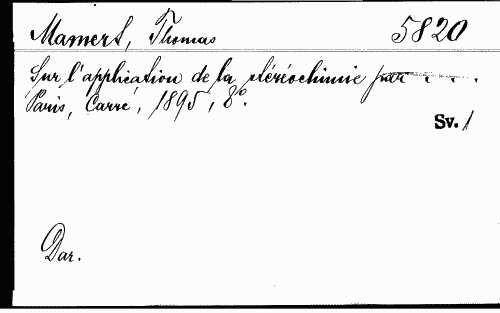 Mamert, Thomas 5820
Sur l'application de la stéréochimie par . . . .
Paris, Carré, 1895, 8°.
Sv. 1
Dar.